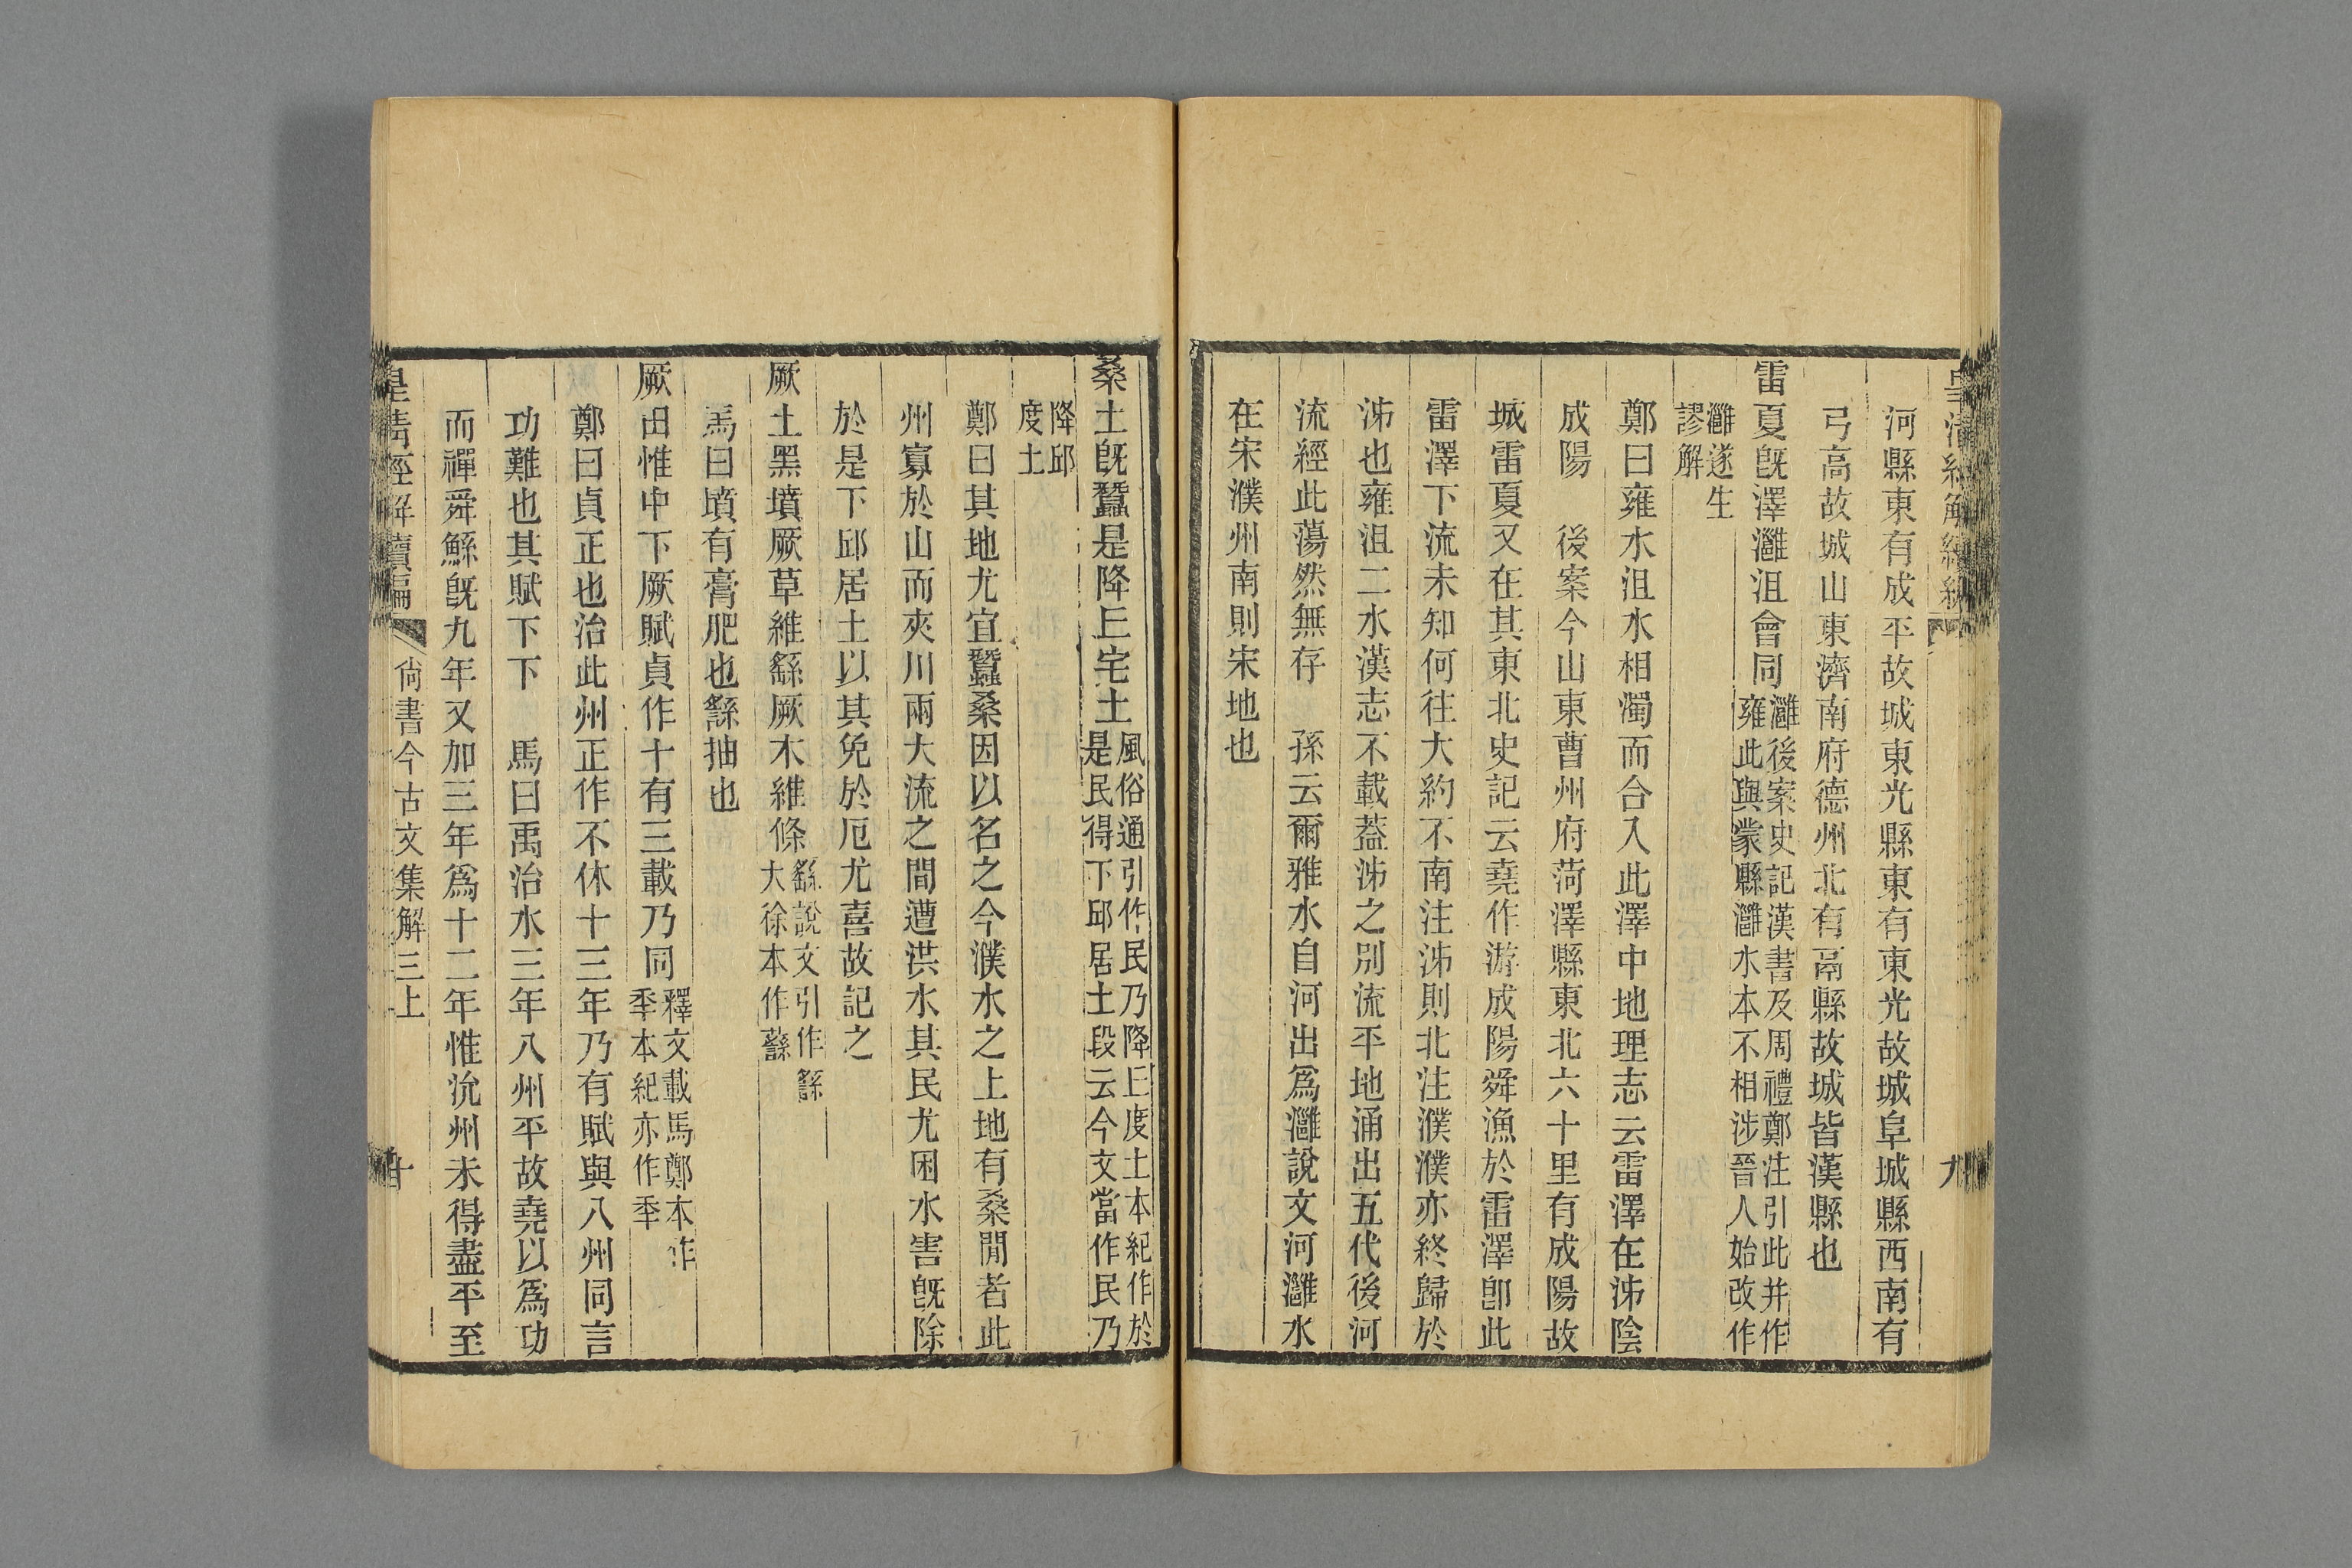 河縣東有成平故城東光縣東有東光故城阜城縣西南有
弓高故城山東濟南府德州北有鬲縣故城皆漢縣也
雷夏旣澤灉沮會同灉後案史記漢書及周禮鄭注引此并作
雍此與蒙縣灉水本不相涉晉人始改作
灉遂生
謬解
鄭曰雍水沮水相濁而合入此澤中地理志云雷澤在泲陰
成陽　後案今山東曹州府菏澤縣東北六十里有成陽故
城雷夏又在其東北史記云堯作游成陽舜漁於雷澤卽此
雷澤下流未知何往大約不南注泲則北注濮濮亦終歸於
泲也雍沮二水漢志不載葢泲之別流平地涌出五代後河
流經此蕩然無存　孫云爾雅水自河出爲灉說文河灉水
在宋濮州南則宋地也
桑土旣蠶是降丘宅土風俗通引作民乃降丘度土本紀作於
是民得下邱居土段云今文當作民乃
降邱
度土
鄭曰其地尤宜蠶桑因以名之今濮水之上地有桑閒者此
州寡於山而夾川兩大流之間遭洪水其民尤困水害旣除
於是下邱居土以其免於厄尤喜故記之
厥土黑墳厥草維繇厥木維條繇說文引作䌛
大徐本作蘨
馬曰墳有膏肥也䌛抽也
厥田惟中下厥賦貞作十有三載乃同釋文載馬鄭本作
秊本紀亦作秊
鄭曰貞正也治此州正作不休十三年乃有賦與八州同言
功難也其賦下下　馬曰禹治水三年八州平故堯以爲功
而禪舜鯀旣九年又加三年爲十二年惟沇州未得盡平至
皇淸經解續編　尙書今古文集解三上　十